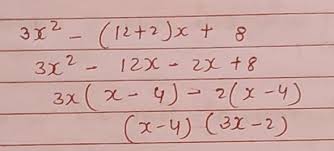 3x² - (12+2)x + 8
3x² - 12x - 2x + 8
3x(x - 4) - 2(x - 4)
(x-4) (3x-2)